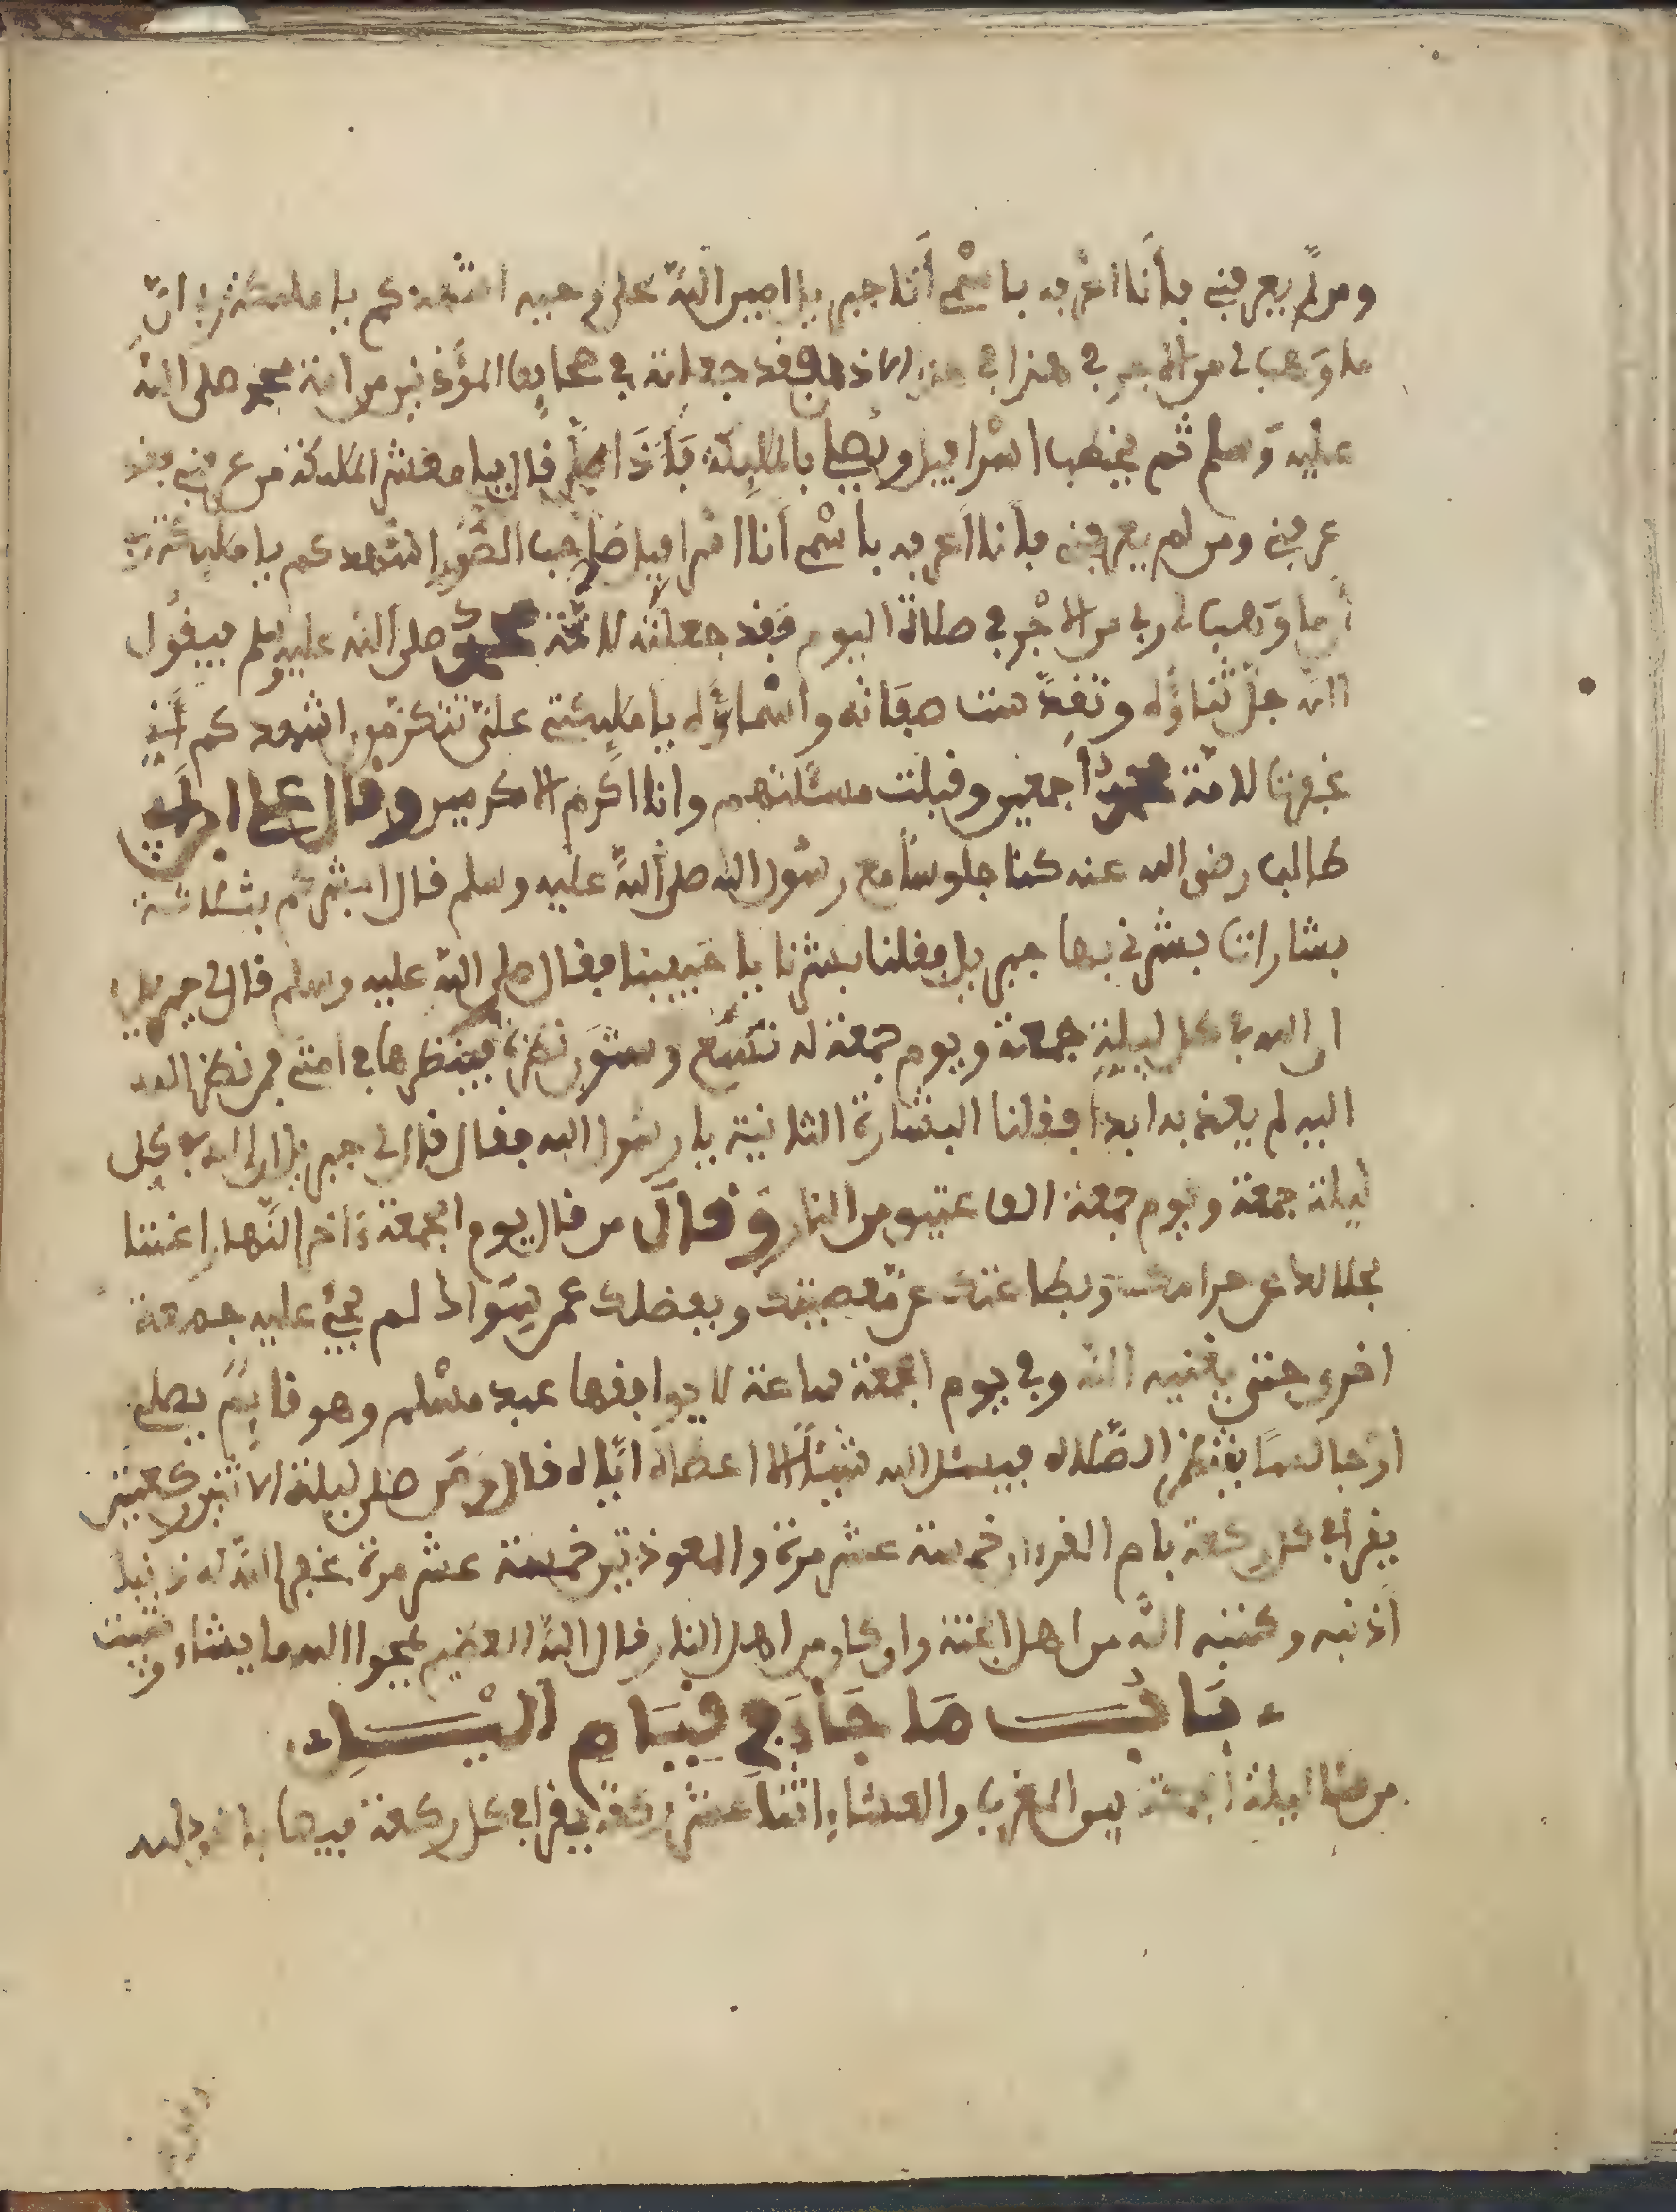 ومن لم يعرفني فأنا اعرفه باسمي أنا جبريل امين الله على وحيه اشهدكم يا ملئكة ربي ان
ما وهب لي من الاجر في هذا الاذان فقد جعلته في صحايف المؤذنين من امة محمد صلى الله
عليه وسلم ثم يخطب اسرافيل ويصلي بالمليكة فإذا صلى قال يا معشر الملئكة من عرفني فقد
عرفني ومن لم يعرفني فأنا أعرفه باسمي أنا اسرافيل صاحب الصور اشهدكم يا مليكة ربي
أن ما وهب لي ربي من الاجر في صلاة اليوم فقد جعلته لامة محمد صلى الله عليه وسلم فيقول
الله جل ثناؤه وتقدست صفاته واسماؤه يا مليكتي علي تتكرمون اشهدكم أني
غفرت لامة محمد أجمعين وقبلت مسئلتهم وانا اكرم الاكرمين وقال علي ابن ابي
طالب رضي الله عنه كنا جلوسا مع رسول الله صلى الله عليه وسلم قال ابشركم بثلاثة
بشارات بشرني بها جبريل فقلنا بشرنا يا حبيبنا فقال صلى الله عليه وسلم قال لي جبريل
ان الله في كل ليلة جمعة ويوم جمعة له تسع وستون نظرة فينظرها في امتي فمن نظر الله
اليه لم يعذبه ابدا فقلنا البشارة الثانية يا رسول الله فقال قال لي جبريل ان لله في كل
ليلة جمعة ويوم جمعة الف عتيق من النار وقال من قال يوم الجمعة في اخر النهار اغننا
بحلالك عن حرامك وبطاعتك عن معصيتك وبفضلك عمن سواك لم تجئ عليه جمعة
اخرى حتى يغنيه الله وفي يوم الجمعة ساعة لا يوافقها عبد مسلم وهو قايم يصلي
او جالسا ينتظر الصلاة فيسئل الله شيئا الا اعطاه اياه قال ومن صلى ليلة الاثنين ركعتين
يقرأ في كل ركعة بام القرءان خمسة عشر مرة والمعوذتين خمسة عشر مرة غفر الله له ذنبه
اذنبه وكتبه الله من اهل الجنة وان كان من اهل النار قال الله العظيم يمحوا الله ما يشاء ويثبت
باب ما جاء في قيام اليل
من صلى ليلة الجمعة بين المغرب والعشاء اثنتا عشر ركعة يقرأ في كل ركعة فيها